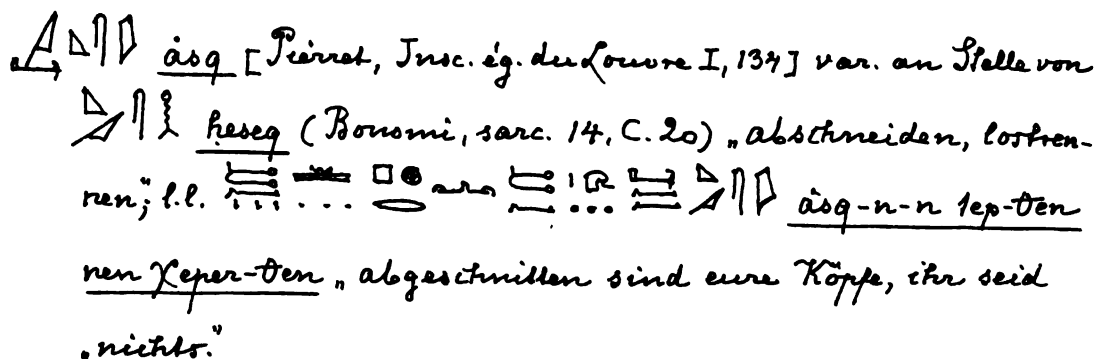 ȧsq [Pierret, Insc. ég. du Louvre I, 134] var. an Stelle von
ḥeseq (Bonomi, sarc. 14, C. 20) „abschneiden, lostren-
nen,"; l.l. ȧsq-n-n tep-ten
nen χeper-ten „abgeschnitten sind eure Köpfe, ihr seid
„nichts."